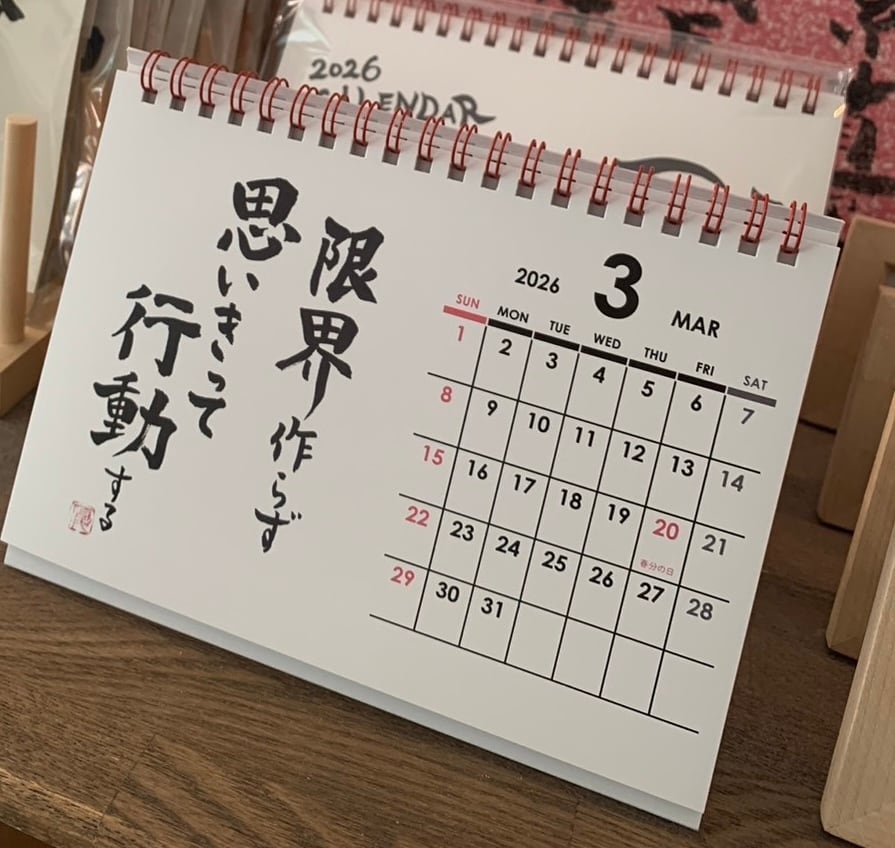 2026
CALENDAR
限界作らず
思いきって
行動する
2026 3 MAR
SUN MON TUE WED THU FRI SAT
1 2 3 4 5 6 7
8 9 10 11 12 13 14
15 16 17 18 19 20 21
春分の日
22 23 24 25 26 27 28
29 30 31